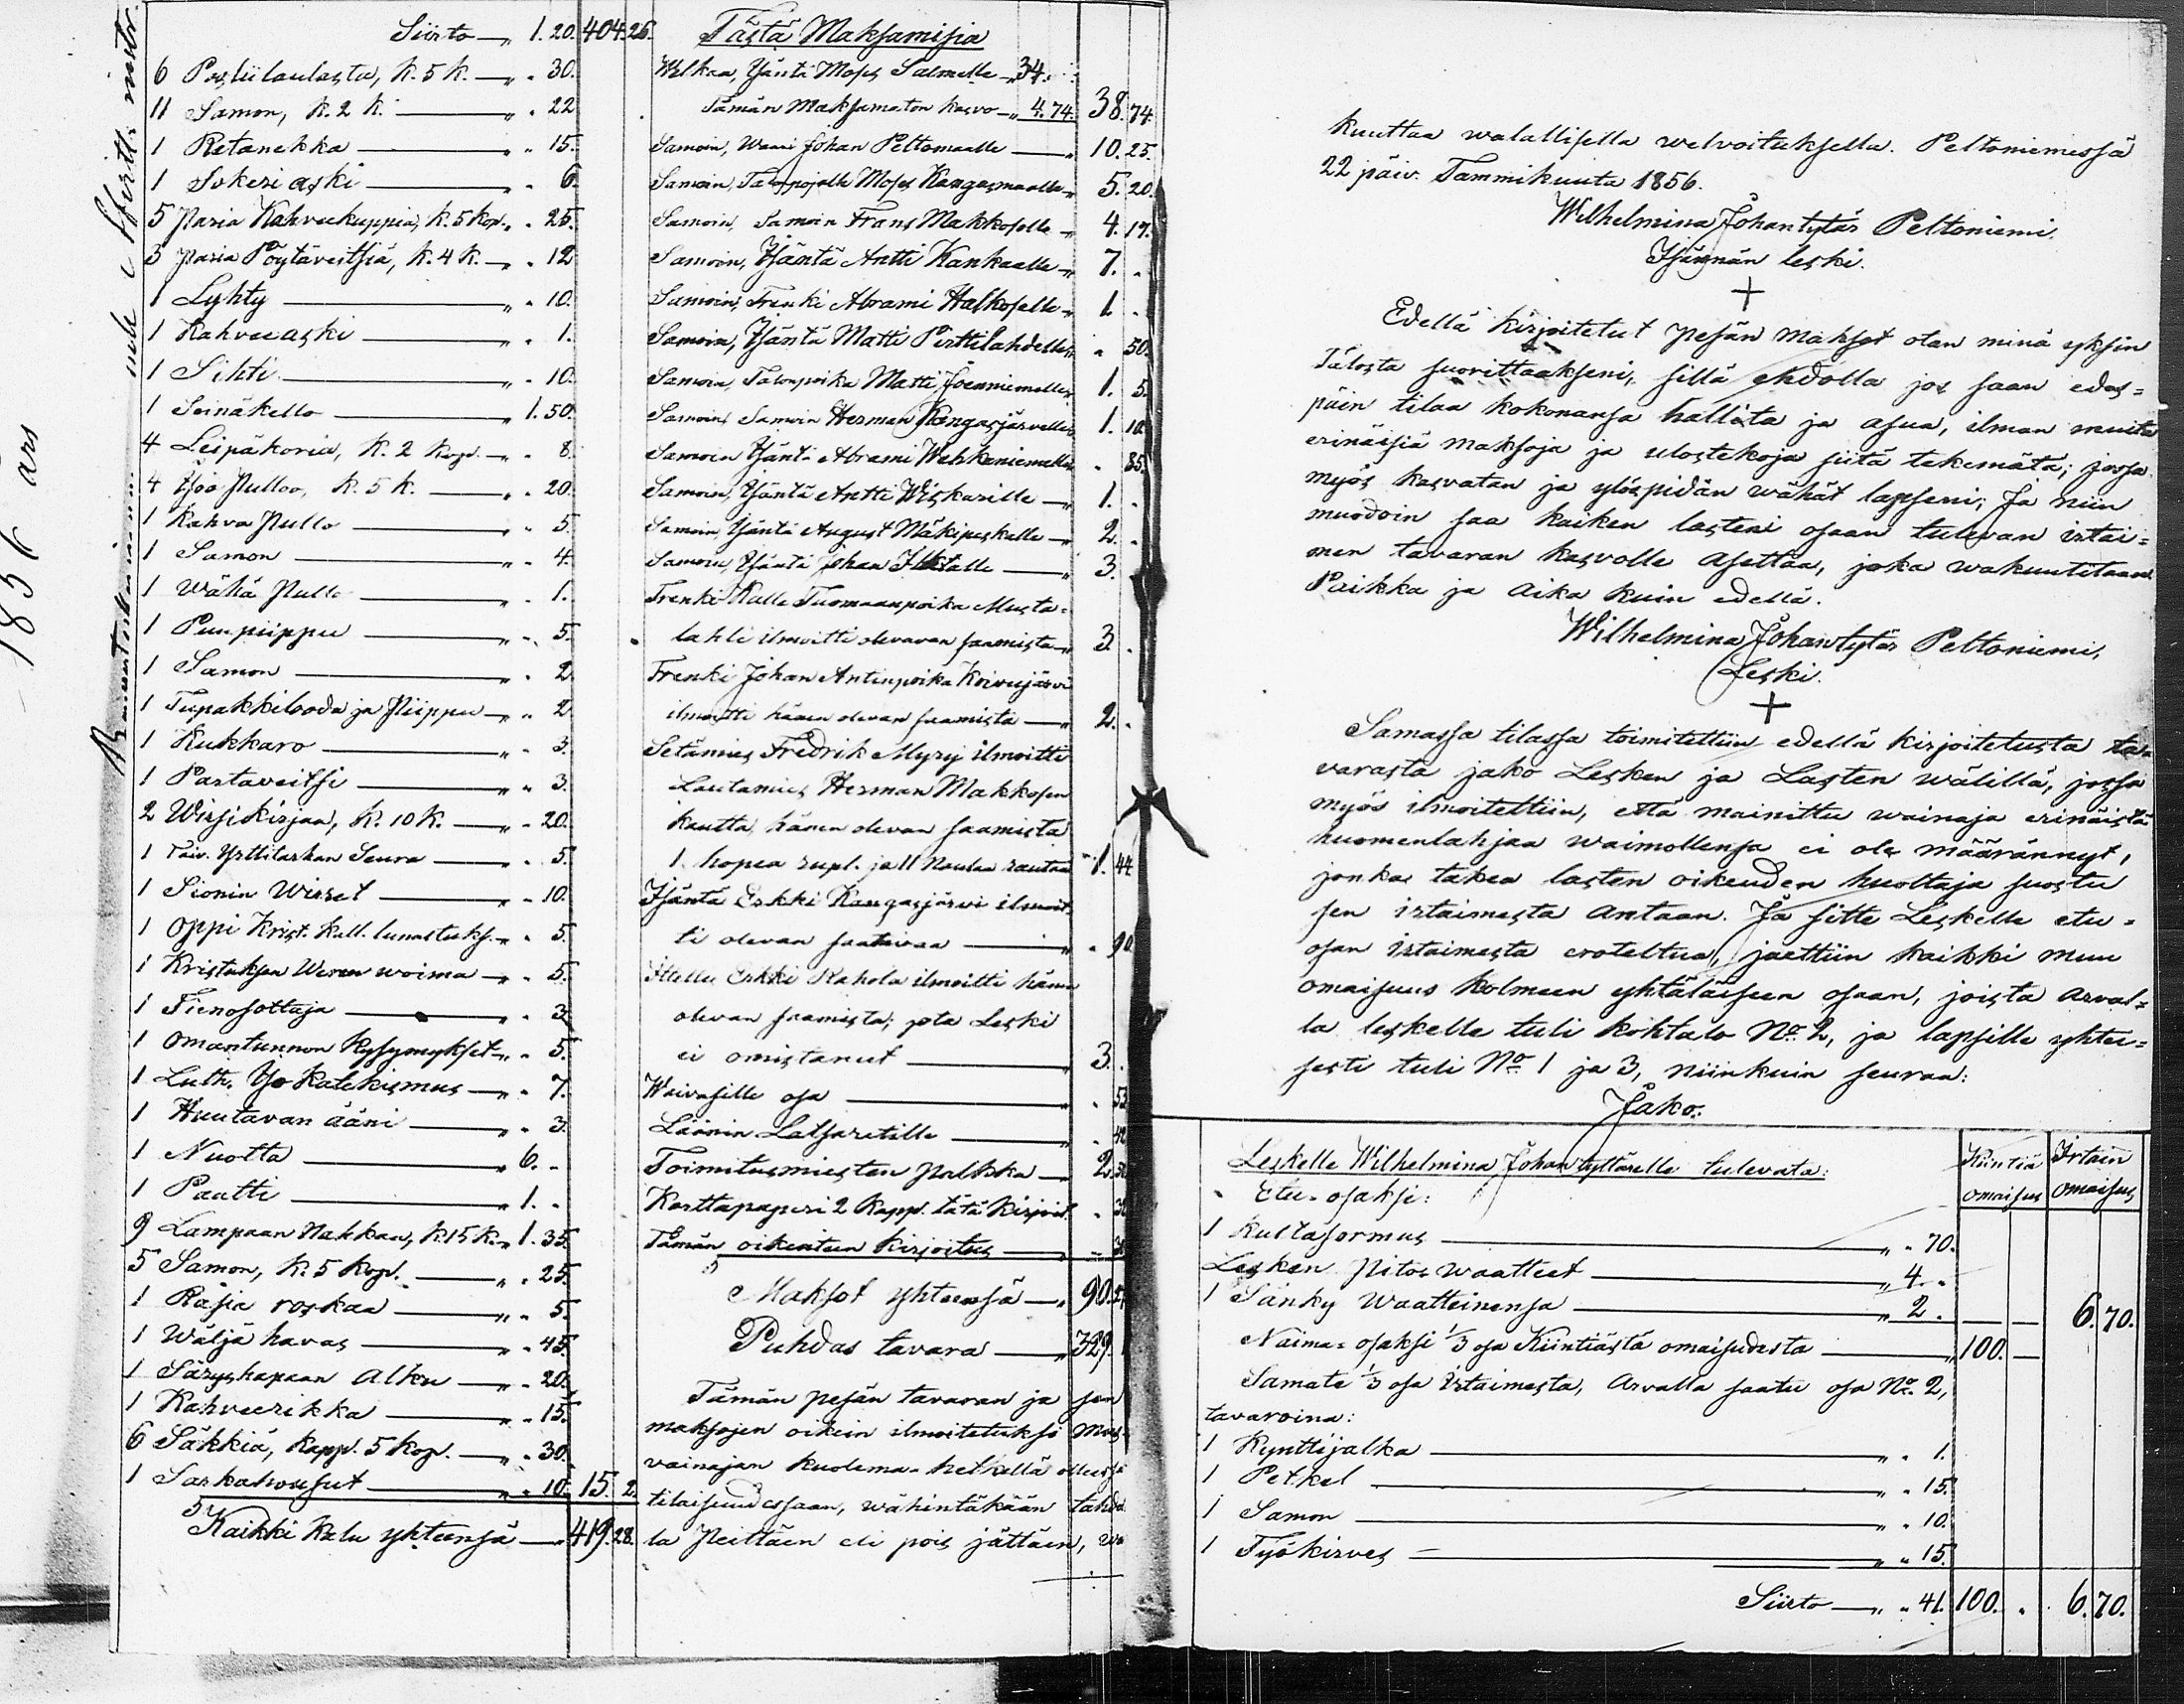 1856 års
Siirto — " 1. 20. 404. 26.
6 Posliilaulasta, k. 5 k. — " " 30.
11 Samon, k. 2 k. — " " 22
1 Retanekka — " " 15.
1 Sokeri aski — " " 6.
5 Paria Kahveekuppia, k. 5 kop. " " 25.
3 Paria Pöytäveitsiä, k. 4 k. — " " 12
1 Lyhty — " " 10.
1 Kahveeaski — " " 1.
1 Sihti — " " 10.
1 Seinäkello — 1. 50.
4 Leipäkoria, k. 2 kop. — " " 8.
4 Isoo Pulloo, k. 5 k. — " " 20.
1 Kahva Pullo — " " 5.
1 Samon — " " 4.
1 Wähä Pullo — " " 1.
1 Puupiippu — " " 5.
1 Samon — " " 2.
1 Tupakkilooda ja Piippu — " " 2
1 Kukkaro — " " 3.
1 Partaveitsi — " " 3.
2 Wirsikirjaa, k. 10 k. — " " 20.
1 Taiv. Yrttitarhan Seura — " " 5.
1 Sionin Wirret — " " 10.
1 Oppi Krist. kall. lunastuks. — " " 5.
1 Kristuksen Weren woima — " " 5.
1 Tienosottaja — " " 3.
1 Omantunnon Kysymykset — " " 5.
1 Luth. Iso Katekismus — " " 7.
1 Huutavan ääni — " " 3.
1 Nuotta — " 6. "
1 Paatti — " 1. "
9 Lampaan Nahkaa, k. 15 k. " 1. 35.
5 Samon, k. 5 kop. — " " 25.
1 Räsiä roskaa — " " 5.
1 Wäljä havas — " " 45.
1 Säryshapaan Alku — " " 20.
1 Kahveerikka — " " 15.
6 Säkkiä, kapp. 5 kop. — " " 30.
1 Sarkahousut — " " 10. 15. 2.
Kaikki Kalu yhteensä — " 419. 28.
Tästä Maksamisia
Welkaa, Isäntä Moses Salmelle — " 34.
Tämän Maksamaton kasvo — " 4. 74. 38. 74.
Samoin, Waari Johan Peltomaalle — " 10. 25.
Samoin, Talonpojalle Moses Kangasmaalle — " 5. 20.
Samoin, Samoin Frans Makkoselle — " 4. 17.
Samoin, Isäntä Antti Kankaalle — " 7. "
Samoin, Trenki Abrami Halkoselle — " 1. "
Samoin, Isäntä Matti Pirttilahdelle " " 50.
Samoin, Talonpoika Matti Joenniemelle " 1. 5.
Samoin, Samoin Herman Kangasjärvelle " 1. 10
Samoin Isäntä Abrami Wehkaniemelle " " 85.
Samoin, Isäntä Antti Wiskarille — " 1. "
Samoin, Isäntä August Mäkipeskelle — " 2. "
Samoin, Isäntä Johan Hietalle — " 3.
Trenki Kalle Tuomaanpoika Musta=
lahti ilmoitti olevavan saamista — " 3. "
Trenki Johan Antinpoika Koivujärvi
ilmoitti hänen olevan saamista — " 2. "
Setämies Fredrik Myry ilmoitti
Lautamies Herman Makkosen
kautta, hänen olevan saamista
1. hopea rupl. ja 11 Naulaa rautaa " 1. 44
Isäntä Erkki Kangasjärvi ilmoit=
ti olevan saatavaa — " " 90.
Ittellu Erkki Rahola ilmoitti hänen
olevan saamista; jota Leski
ei omistanut — 3. "
Waivasille osa — " " 53
Läänin Latsaretille — " " 42
Toimitusmiesten Palkka — " 2. 50
Karttapaperi 2 kapp. tätä kirjoit. " 30
Tämän oikeuteen kirjoitus — " " 30
Maksot yhteensä — " 90. 27
Puhdas tavara — " 329. 1
Tämän pesän tavaran ja sen
maksojen oikein ilmoitetuksi mies=
vainajan kuolema-hetkellä olleessa
tilaisuudessaan, wähintäkään tahdol=
la Peittäen eli pois jättäen, wa
kuuttaa walallisella welvoituksella. Peltoniemessä
22 päiv. Tammikuuta 1856.
Wilhelmina Johantytär Peltoniemi.
Isännän leski.
+
Edellä kirjoitetut pesän maksot otan minä yksin
Talosta suorittaakseni, sillä ehdolla jos saan edes=
päin tilaa kokonansa hallita ja asua, ilman muita
erinäisiä maksoja ja ulostekoja siitä tekemätä; jossa
myös kasvatan ja ylöspidän wähät lapseni; Ja niin
muodoin saa kaiken lasteni osaan tulevan irtai=
men tavaran kasvolle asettaa, joka wakuutetaan.
Paikka ja aika kuin edellä.
Wilhelmina Johantytär Peltoniemi,
Leski.
+
Samassa tilassa toimitettiin edellä kirjoitetusta ta=
varasta jako Lesken ja Lasten wälillä, jossa
myös ilmoitettiin, että mainittu wainaja erinäistä
huomenlahjaa waimollensa ei ole määrännyt,
jonka takea lasten oikeuden huoltaja suostu
sen irtaimesta antaan. Ja sitte Leskelle etu=
osan irtaimesta eroteltua, jaettiin kaikki muu
omaisuus kolmeen yhtäläiseen osaan, joista arval=
la leskelle tuli kohtalo No. 2, ja lapsille yhtei=
sesti tuli No 1 ja 3, niinkuin seuraa:
Jako.
Leskelle Wilhelmina Johantyttärelle tulevata: Kiintiä omaisus Irtain omaisus
Etu-osaksi:
1 Kultasormus — " " 70.
Lesken Pitos waatteet — " 4. "
1 Sänky Waatteinensa — " 2. " — — 6. 70.
Naima-osaksi 1/3 osa Kiintiästä omaisudesta — " 100. —
Samate 1/3 osa irtaimesta, arvalla saatu osa No. 2,
tavaroina:
1 Kynttijalka — " " 1.
1 Petkel — " " 15.
1 Samon — " " 10.
1 Työkirves — " " 15.
Siirto — " " 41. 100. " 6. 70.